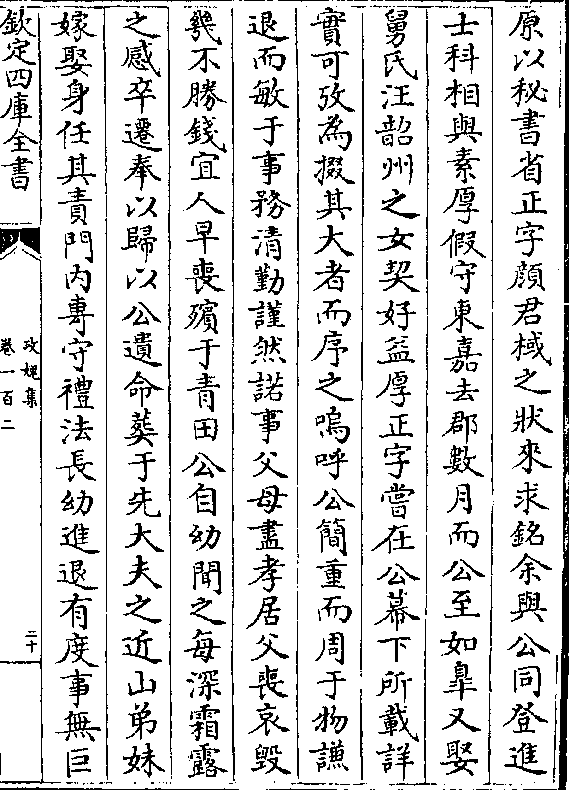 原以秘書省正字顔君棫之狀來求銘余與公同登進
士科相與素厚假守東嘉去郡數月而公至如臯又娶
舅氏汪韶州之女契好益厚正字嘗在公幕下所載詳
實可攷為掇其大者而序之嗚呼公簡重而周于物謙
退而敏于事務清勤謹然諾事父母盡孝居父喪哀毀
㡬不勝錢宜人早喪殯于青田公自幼聞之每深霜露
之感卒遷奉以歸以公遺命葬于先大夫之近山弟妹
嫁娶身任其責門内專守禮法長幼進退有度事無巨
欽定四庫全書
攻媿集
卷一百二
二十